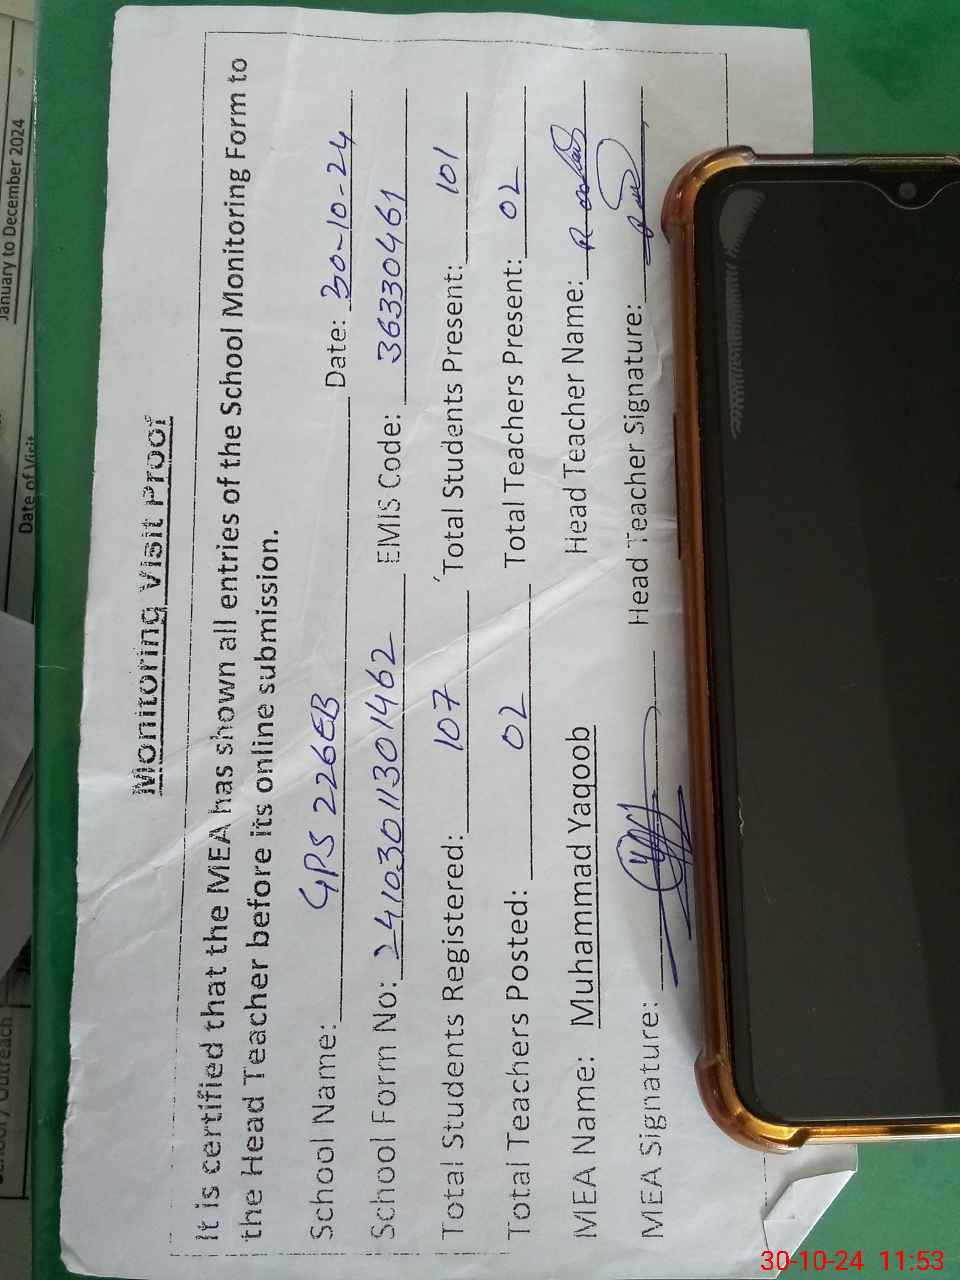 Monitoring Visit Proof
It is certified that the MEA has shown all entries of the School Monitoring Form to
the Head Teacher before its online submission.
School Name: GPS 226EB Date: 30-10-24
School Form No: 24103011301462 EMIS Code: 36330461
Total Students Registered: 107 Total Students Present: 101
Total Teachers Posted: 02 Total Teachers Present: 02
MEA Name: Muhammad Yaqoob Head Teacher Name:
MEA Signature: Head Teacher Signature:
January to December 2024
Date of Visit
Outreach
30-10-24 11:53